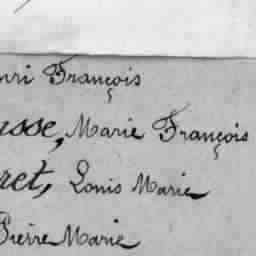 nri François
usse, Marie François
ret, Louis Marie
Pierre Marie